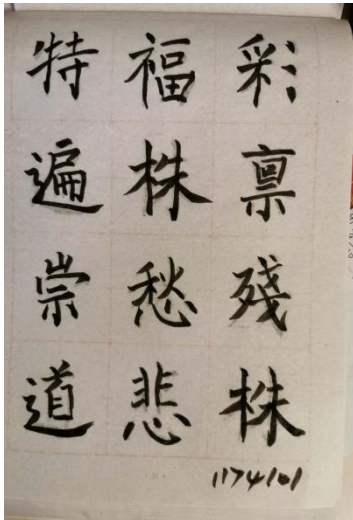 彩禀殘株
福株愁悲
特遍崇道
1174101